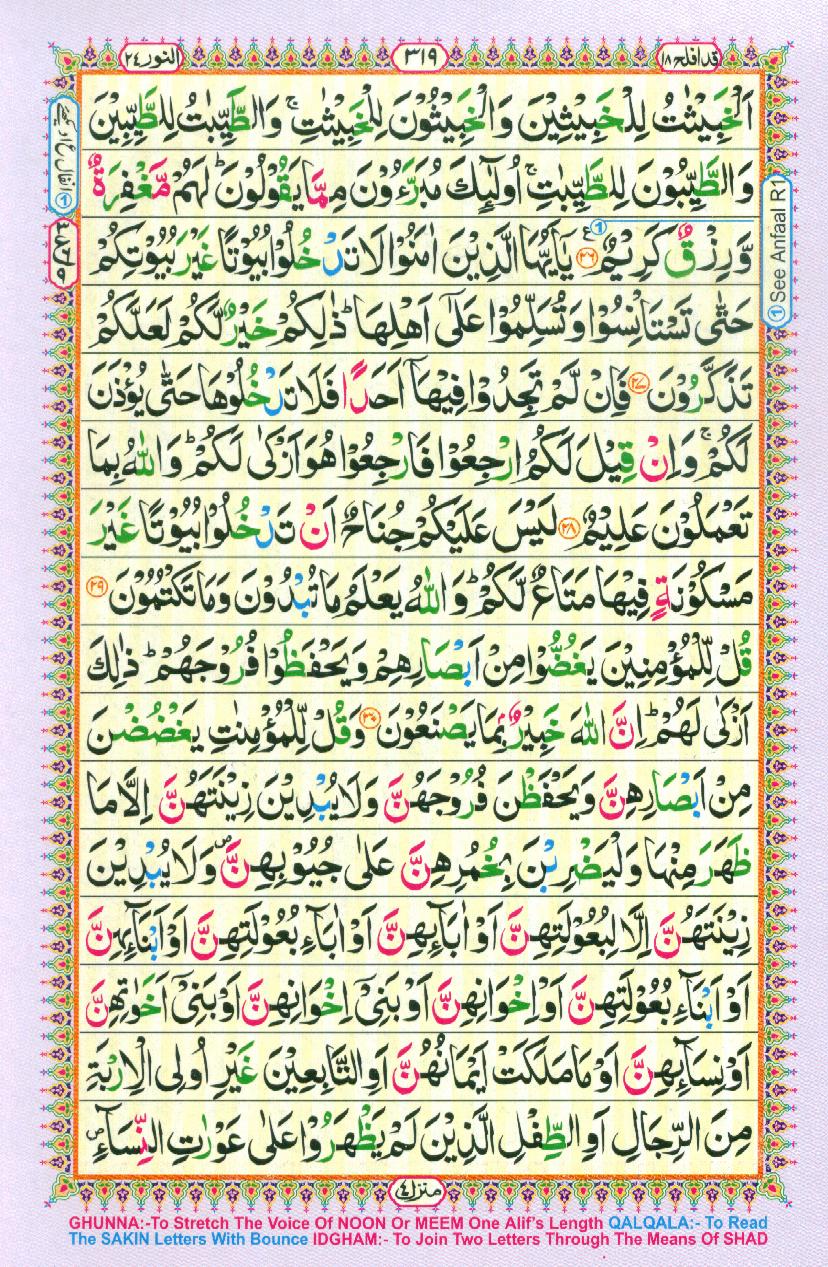 قد افلح ۱۸
۳۱۹
النور ۲۴
اَلْخَبِيْثٰتُ لِلْخَبِيْثِيْنَ وَالْخَبِيْثُوْنَ لِلْخَبِيْثٰتِ ۚ وَالطَّيِّبٰتُ لِلطَّيِّبِيْنَ
وَالطَّيِّبُوْنَ لِلطَّيِّبٰتِ ۚ اُولٰٓئِكَ مُبَرَّءُوْنَ مِمَّا يَقُوْلُوْنَ ؕ لَهُمْ مَّغْفِرَةٌ
وَّرِزْقٌ كَرِيْمٌ ۲۶ يٰۤاَيُّهَا الَّذِيْنَ اٰمَنُوْا لَا تَدْخُلُوْا بُيُوْتًا غَيْرَ بُيُوْتِكُمْ
حَتّٰى تَسْتَاْنِسُوْا وَتُسَلِّمُوْا عَلٰٓى اَهْلِهَا ؕ ذٰلِكُمْ خَيْرٌ لَّكُمْ لَعَلَّكُمْ
تَذَكَّرُوْنَ ۲۷ فَاِنْ لَّمْ تَجِدُوْا فِيْهَاۤ اَحَدًا فَلَا تَدْخُلُوْهَا حَتّٰى يُؤْذَنَ
لَكُمْ ۚ وَاِنْ قِيْلَ لَكُمُ ارْجِعُوْا فَارْجِعُوْا هُوَ اَزْكٰى لَكُمْ ؕ وَاللّٰهُ بِمَا
تَعْمَلُوْنَ عَلِيْمٌ ۲۸ لَيْسَ عَلَيْكُمْ جُنَاحٌ اَنْ تَدْخُلُوْا بُيُوْتًا غَيْرَ
مَسْكُوْنَةٍ فِيْهَا مَتَاعٌ لَّكُمْ ؕ وَاللّٰهُ يَعْلَمُ مَا تُبْدُوْنَ وَمَا تَكْتُمُوْنَ ۲۹
قُلْ لِّلْمُؤْمِنِيْنَ يَغُضُّوْا مِنْ اَبْصَارِهِمْ وَيَحْفَظُوْا فُرُوْجَهُمْ ؕ ذٰلِكَ
اَزْكٰى لَهُمْ ؕ اِنَّ اللّٰهَ خَبِيْرٌۢ بِمَا يَصْنَعُوْنَ ۳۰ وَقُلْ لِّلْمُؤْمِنٰتِ يَغْضُضْنَ
مِنْ اَبْصَارِهِنَّ وَيَحْفَظْنَ فُرُوْجَهُنَّ وَلَا يُبْدِيْنَ زِيْنَتَهُنَّ اِلَّا مَا
ظَهَرَ مِنْهَا وَلْيَضْرِبْنَ بِخُمُرِهِنَّ عَلٰى جُيُوْبِهِنَّ ۪ وَلَا يُبْدِيْنَ
زِيْنَتَهُنَّ اِلَّا لِبُعُوْلَتِهِنَّ اَوْ اٰبَآئِهِنَّ اَوْ اٰبَآءِ بُعُوْلَتِهِنَّ اَوْ اَبْنَآئِهِنَّ
اَوْ اَبْنَآءِ بُعُوْلَتِهِنَّ اَوْ اِخْوَانِهِنَّ اَوْ بَنِىْۤ اِخْوَانِهِنَّ اَوْ بَنِىْۤ اَخَوٰتِهِنَّ
اَوْ نِسَآئِهِنَّ اَوْ مَا مَلَكَتْ اَيْمَانُهُنَّ اَوِ التّٰبِعِيْنَ غَيْرِ اُولِى الْاِرْبَةِ
مِنَ الرِّجَالِ اَوِ الطِّفْلِ الَّذِيْنَ لَمْ يَظْهَرُوْا عَلٰى عَوْرٰتِ النِّسَآءِ ۪
① See Anfaal R1
منزل ۴
GHUNNA:-To Stretch The Voice Of NOON Or MEEM One Alif's Length QALQALA:- To Read
The SAKIN Letters With Bounce IDGHAM:- To Join Two Letters Through The Means Of SHAD